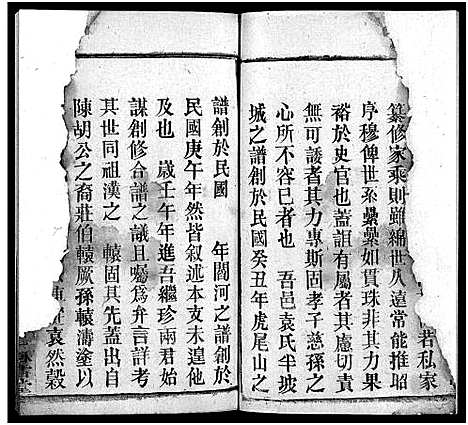 若私家
纂修家乘則雖綿世久遠常能推昭
序穆俾世系纍纍如貫珠非其力果
裕於史官也蓋詛有屬者其慮切責
無可諉者其力專斯固孝子慈孫之
心所不容已者也 吾邑袁氏半坡
城之譜創於民國癸丑年虎尾山之
譜創於民國 年閤河之譜創於
民國庚午年然皆叙述本支未遑他
及也 歲壬午年進吾繼珍兩君始
謀創修合譜之議且囑爲弁言詳考
其世同祖漢之 轅固其先蓋出自
陳胡公之裔莊伯轅厥孫轅濤塗以
袁然穀